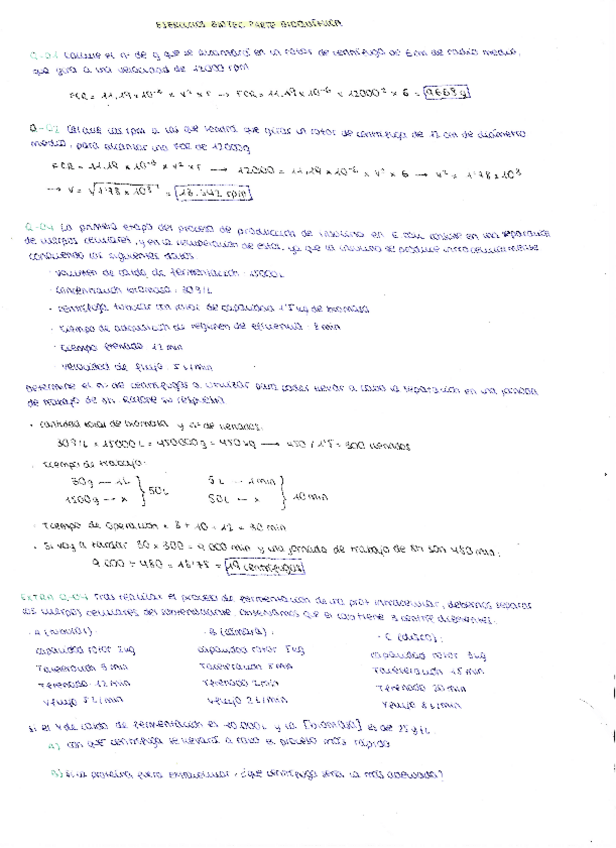 EJERCICIOS BIOTEC PARTE BIOQUÍMICA
Q-01 Calcule el nº de g que se alcanzará en un rotor de centrífuga de 6 cm de radio medio,
que gira a una velocidad de 12000 rpm
FCR = 11'19 x 10⁻⁶ x v² x r → FCR = 11'19 x 10⁻⁶ x 12000² x 6 = 9668 g
Q-02 Calcule las rpm a las que tendrá que girar un rotor de centrífuga de 12 cm de diámetro
medio, para alcanzar una FCR de 12000g
FCR = 11'19 x 10⁻⁶ x v² x r → 12000 = 11'19 x 10⁻⁶ x v² x 6 → v² = 1'78 x 10⁸
→ v = √1'78 x 10⁸ = 13.342 rpm
Q-04 La primera etapa del proceso de producción de insulina en E. coli consiste en una separación
de cuerpos celulares, y en la recuperación de estos, ya que la insulina se produce intracelularmente
conociendo los siguientes datos:
· Volumen de caldo de fermentación: 15000 L
· Concentración biomasa: 30 g/L
· Centrífuga tubular con rotor de capacidad 1'5 kg de biomasa
· Tiempo de adquisición de régimen de eficiencia: 8 min
· Tiempo frenado 12 min
· Velocidad de flujo: 5 L/min
Determine el nº de centrífugas a utilizar para poder llevar a cabo la separación en una jornada
de trabajo de 8h. Razone su respuesta.
· Cantidad total de biomasa y nº de llenados:
30 g/L x 15000 L = 450000 g = 450 kg → 450 / 1'5 = 300 llenados
· Tiempo de trabajo:
30g — 1L } 50L 5L — 1 min } 10 min
1500g — x 50L — x
· Tiempo de operación = 8 + 10 + 12 = 30 min
· Si voy a tardar 30 x 300 = 9 000 min y una jornada de trabajo de 8h son 480 min:
9 000 ÷ 480 = 18'75 = 19 centrífugas
EXTRA Q-04 Tras realizar el proceso de fermentación de una prot intracelular, debemos separar
los cuerpos celulares del sobrenadante. Observamos que el lab tiene 3 centrif diferentes:
· A · B · C (disco):
capacidad rotor 2kg capacidad rotor 5kg capacidad rotor 8kg
Taceleración 9 min Taceleración 8 min Taceleración 15 min
Tfrenado 12 min Tfrenado Tfrenado 20 min
Vflujo 5 L/min Vflujo 2 L/min Vflujo 8 L/min
Si el V de caldo de fermentación es 10.000 L y la [biomasa] es de 25 g/L.
A) Con qué centrífuga se llevará a cabo el proceso más rápido
B) Si la proteína fuera extracelular, ¿qué centrífuga sería la más adecuada?